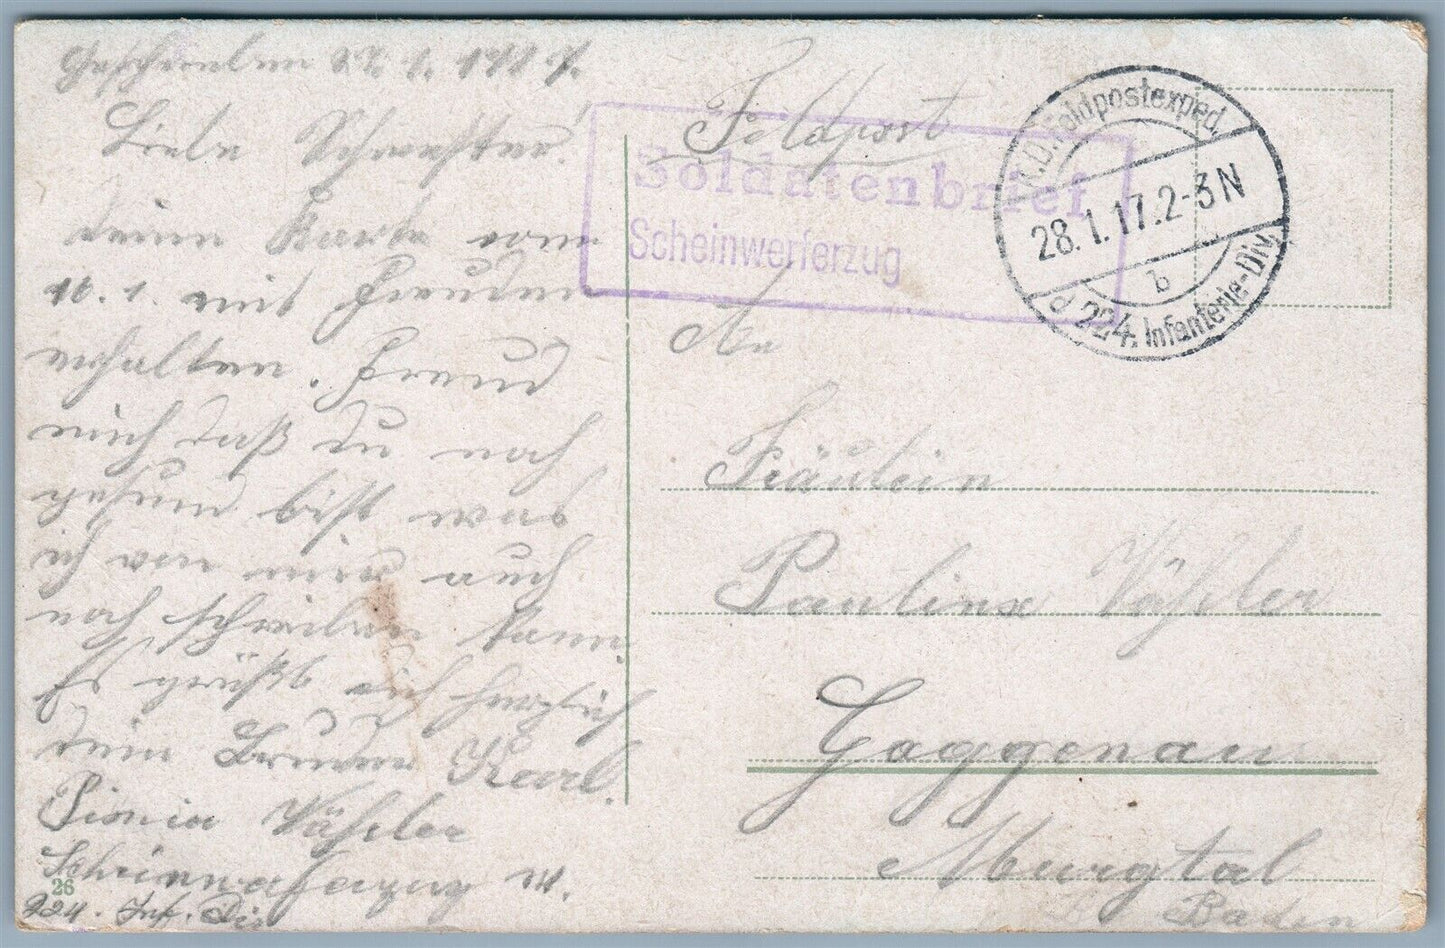 Geschrieben 27. 1. 1917.
Liebe Schwester!
deine Karte vom
16. 1. mit Freuden
erhalten. Freud
mich daß du noch
gesund bist was
ich von mir auch
noch schreiben kann.
Es grüßt dich herzlich
dein Bruder Karl.
Pionier
Scheinwerferzug
224. Inf. Div
26
Feldpost
Soldatenbrief
Scheinwerferzug
K.D. Feldpostexped.
28.1.17.2-3N
b
d 224. Infanterie-Div.
An
Fräulein
Pauline
Gaggenau
Murgtal
Baden